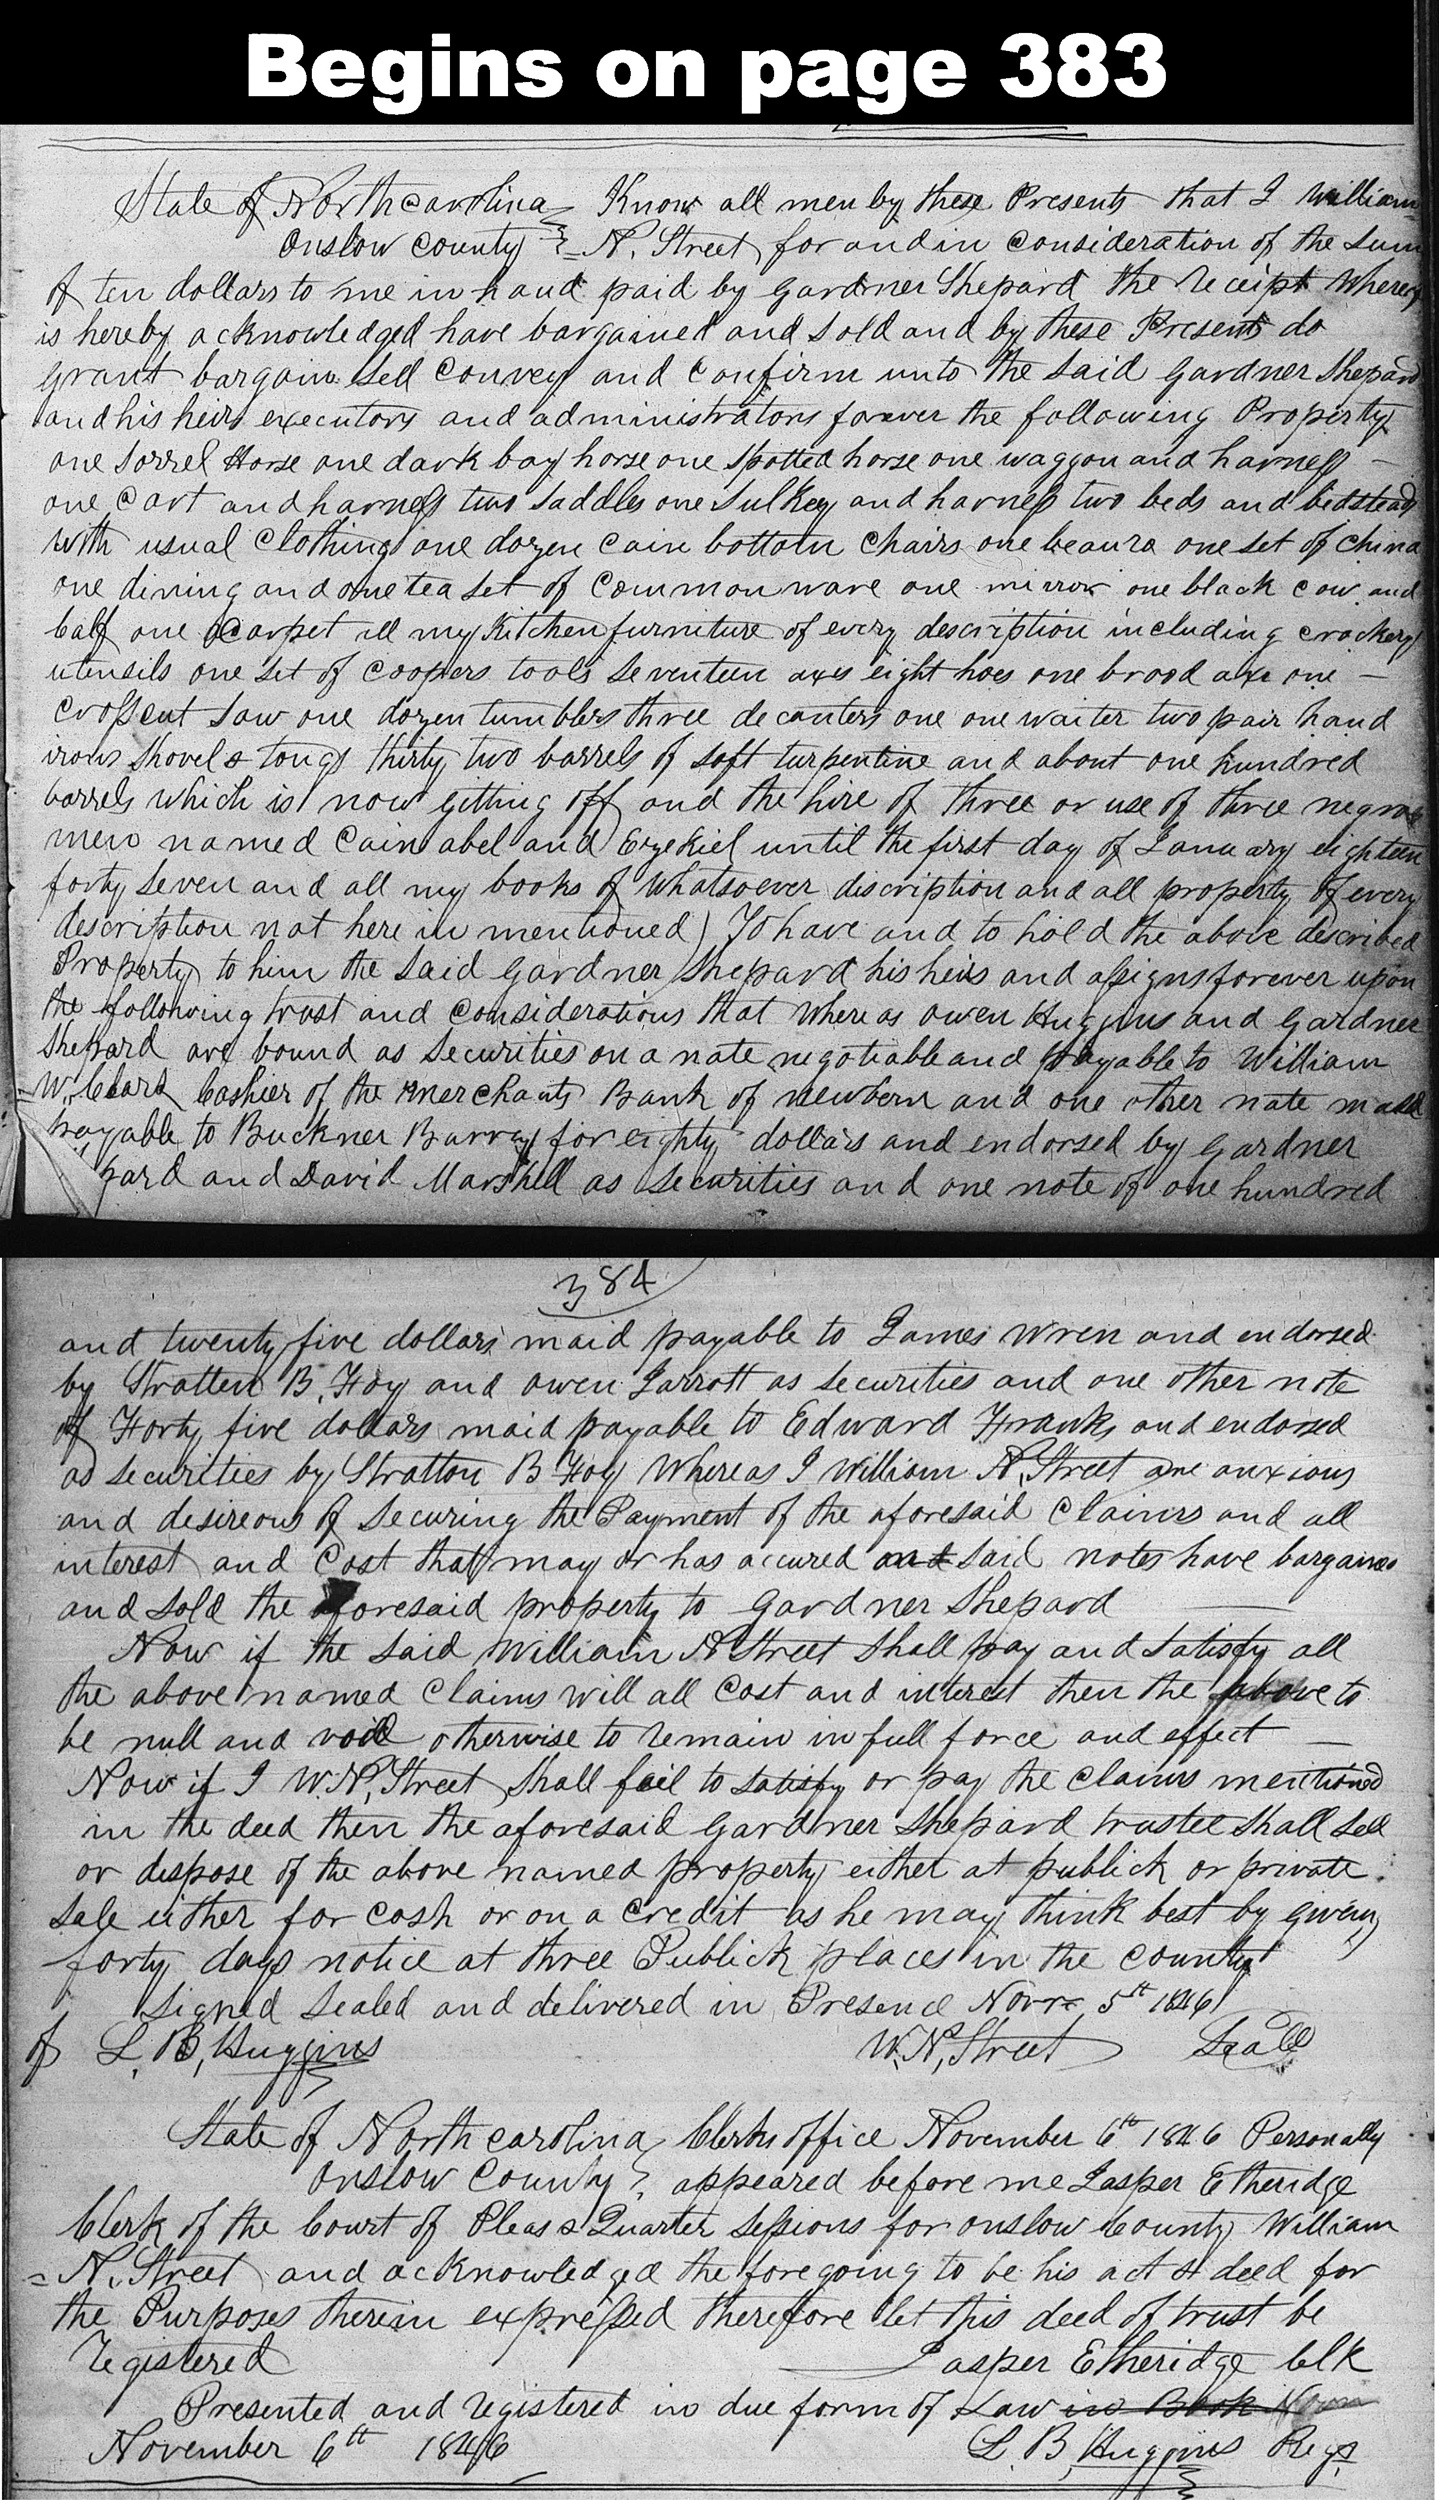 Begins on page 383
State of North carolina Know all men by these Presents that I William
Onslow County N. Street for and in Consideration of the Sum
of ten dollars to me in hand paid by Gardner Shepard the receipt Whereof
is hereby acknowledged have bargained and sold and by these Presents do
grant bargain Sell Convey and Confirm unto the Said Gardner Shepard
and his heirs executors and administrators forever the following Property
one Sorrel Horse one dark bay horse one Spotted horse one waggon and harness
one Cart and harness two Saddles one Sulkey and harness two beds and bedstead
with usual Clothing one dozen Cain bottom Chairs one beaura one set of China
one dining and one tea set of Common ware one mirror one black Cow and
Calf one Carpet all my Kitchen furniture of every description including crockery
utensils one set of Coopers tools Seventeen axes eight hoes one brood axe one —
Crosscut Saw one dozen tumblers three decanters one one waiter two pair hand
irons Shovel & tongs thirty two barrels of soft turpentine and about one hundred
barrels which is now gitting off and the hire of three or use of three negroe
men named Cain abel and Ezekiel until the first day of January eighteen
forty Seven and all my books of Whatsoever discription and all property of every
description not here in mentioned) To have and to hold the above described
Property to him the Said Gardner Shepard his heirs and assigns forever upon
the following trust and Considerations that Whereas Owen Huggins and Gardner
Shepard are bound as Securities on a note negotiable and payable to William
W. Clark Cashier of the Merchants Bank of Newbern and one other note made
payable to Buckner Barray for eighty dollars and endorsed by Gardner
pard and David Marshell as Securities and one note of one hundred
384
and twenty five dollars maid payable to James Wren and endorsed
by Stratten B. Foy and Owen Jarrott as Securities and one other note
of Forty five dollars maid payable to Edward Franks and endorsed
as Securities by Stratton B Foy Whereas I William N. Street are anxious
and desireous of Securing the Payment of the aforesaid Claims and all
interest and Cost that may or has accured and said notes have bargained
and Sold the aforesaid property to Gardner Shepard
Now if the Said William N Street Shall pay and Satisfy all
the above named Claims will all Cost and interest then the above to
be null and void otherwise to remain in full force and effect —
Now if I W. N. Street Shall fail to Satisfy or pay the Claims mentioned
in the deed then the aforesaid Gardner Shepard trustee Shall Sell
or dispose of the above named property either at publick or private
Sale either for Cash or on a Credit as he may think best by giving
forty days notice at three Publick places in the County
Signed Sealed and delivered in Presence Novr 5th 1846
of L. B. Huggins W. N. Street Seal
State of North carolina Clerks office November 6th 1846 Personally
Onslow County appeared before me Jasper Etheridge
Clerk of the Court of Pleas & Quarter Sessions for Onslow County William
N. Street and acknowledged the foregoing to be his act & deed for
the Purposes therein expressed therefore let this deed of trust be
registered Jasper Etheridge Clk
Presented and registered in due form of Law in Book
November 6th 1846 L. B. Huggins Regr